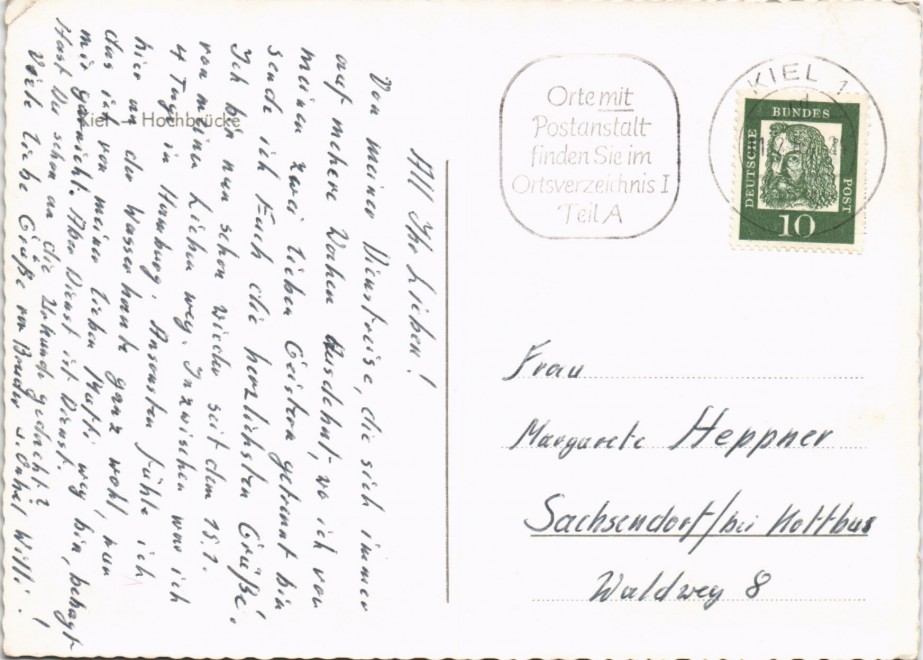 All Ihr Lieben!
Von meiner Dienstreise, die sich immer
auf mehere Wochen ausdehnt, wo ich von
meinen zwei lieben Geistern getrennt bin
sende ich Euch die herzlichsten Grüße.
Ich bin nun schon wieder seit dem 15.1.
von meinen Lieben weg. Inzwischen war ich
4 Tage in Hamburg. Ansonsten fühle ich
hier an der Wasserkante ganz wohl, nun
das ich von meiner lieben Mutti weg bin, behagt
mir garnicht. Aber Dienst ist Dienst.
Hast Du schon an die Urkunde gedacht?
Viele liebe Grüße von Bruder u. Onkel Willi!
Kiel – Hochbrücke
Orte mit
Postanstalt
finden Sie im
Ortsverzeichnis I
Teil A
KIEL 1
DEUTSCHE
BUNDES
POST
10
Frau
Margarete Heppner
Sachsendorf/bei Kottbus
Waldweg 8